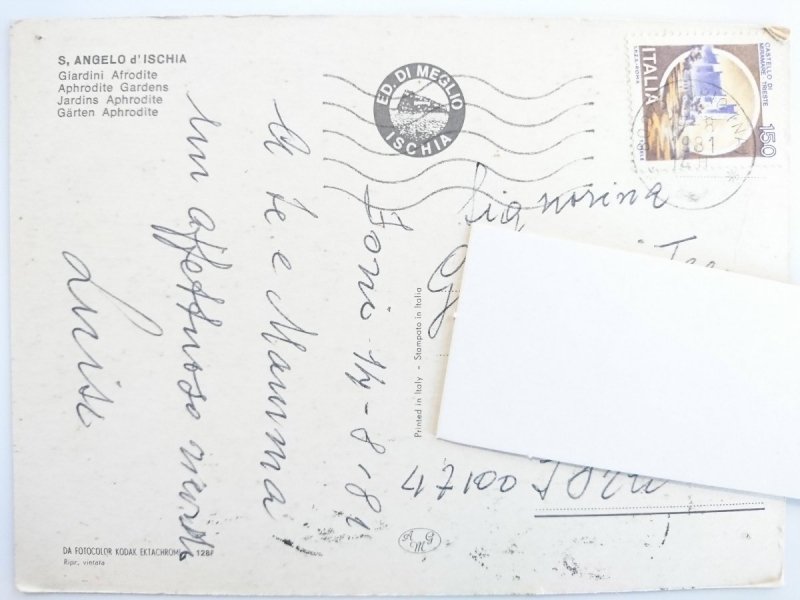 S, ANGELO d'ISCHIA
Giardini Afrodite
Aphrodite Gardens
Jardins Aphrodite
Gärten Aphrodite
ED. DI MEGLIO
ISCHIA
ITALIA
CASTELLO DI
MIRAMARE TRIESTE
150
I.P.Z.S. ROMA
981
Forio 14-8-81
A te e Mamma
un affettuoso ricordo
Luisa
Printed in Italy - Stampato in Italia
Signorina
47100 Forlì
DA FOTOCOLOR KODAK EKTACHROME 128F
Ripr. vietata
A M G